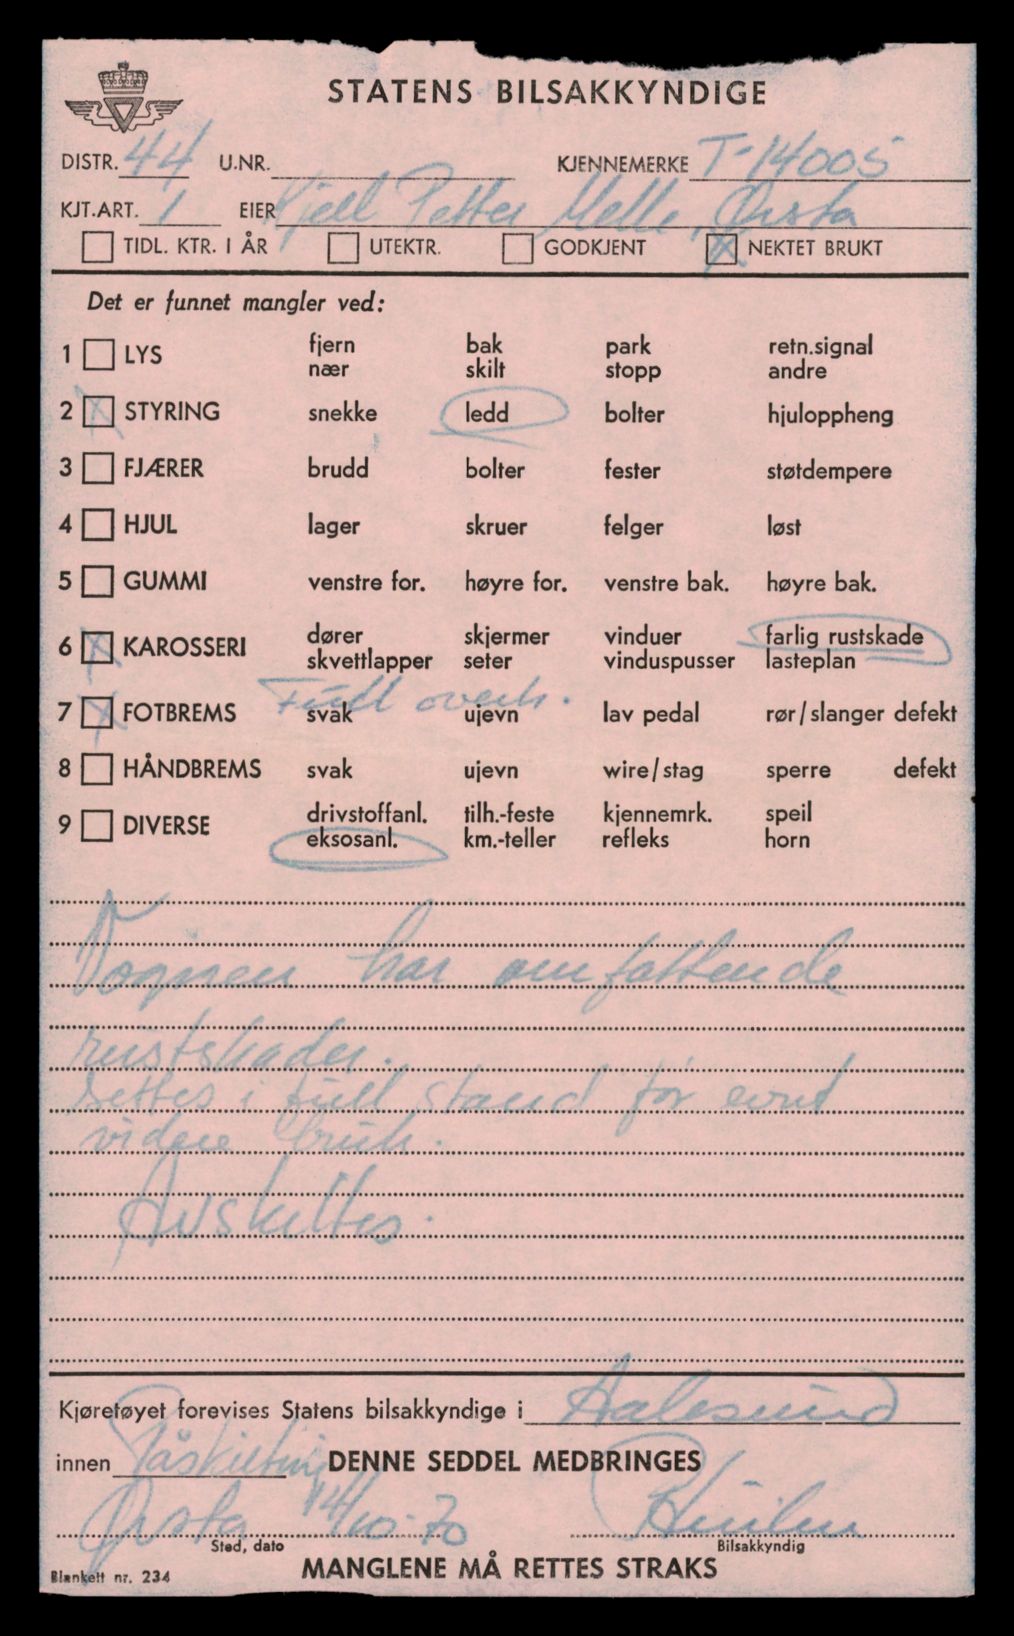 STATENS BILSAKKYNDIGE
DISTR. 44 U.NR. KJENNEMERKE T-14005
KJT.ART. 1 EIER Kjell Petter Melle, Ørsta
TIDL. KTR. I ÅR UTEKTR. GODKJENT X NEKTET BRUKT
Det er funnet mangler ved:
1 LYS fjern bak park retn.signal
nær skilt stopp andre
2 X STYRING snekke ledd bolter hjuloppheng
3 FJÆRER brudd bolter fester støtdempere
4 HJUL lager skruer felger løst
5 GUMMI venstre for. høyre for. venstre bak. høyre bak.
6 X KAROSSERI dører skjermer vinduer farlig rustskade
skvettlapper seter vinduspusser lasteplan
Full overh.
7 X FOTBREMS svak ujevn lav pedal rør/slanger defekt
8 HÅNDBREMS svak ujevn wire/stag sperre defekt
9 DIVERSE drivstoffanl. tilh.-feste kjennemrk. speil
eksosanl. km.-teller refleks horn
Vognen har omfattende
rustskader.
Settes i full stand før evnt
videre bruk.
Avskiltes.
Kjøretøyet forevises Statens bilsakkyndige i Aalesund
innen Påskilting DENNE SEDDEL MEDBRINGES
Ørsta 14/10-70
Sted, dato Bilsakkyndig
Blankett nr. 234 MANGLENE MÅ RETTES STRAKS